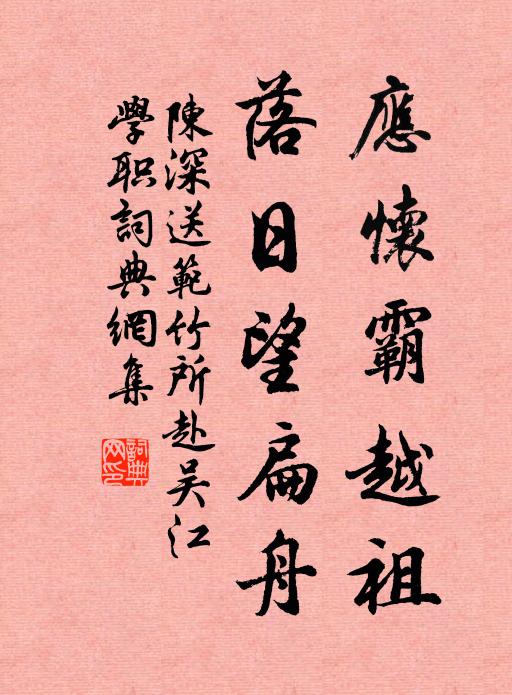 應懷霸越祖
落日望扁舟
陳深送範竹所赴吴江
學职詞典網集
詞典
网印